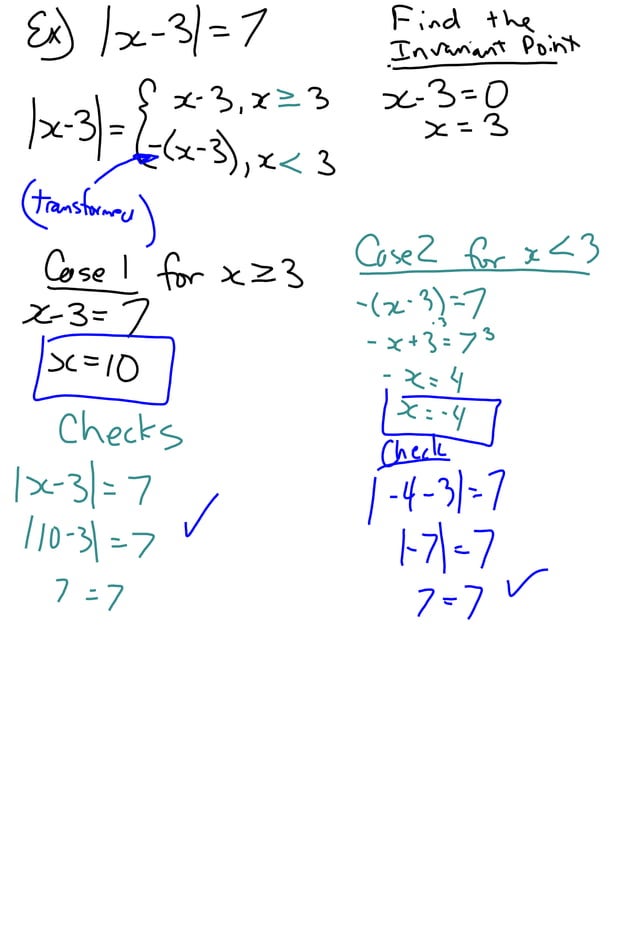 Ex) |x-3| = 7
Find the
Invariant Point
x-3=0
x = 3
|x-3| = { x-3, x ≥ 3
-(x-3), x < 3
(transformed)
Case 1 for x ≥ 3
x-3 = 7
x = 10
Checks
|x-3| = 7
|10-3| = 7 ✓
7 = 7
Case 2 for x < 3
-(x-3) = 7
-x+3 = 7
-3 -3
-x = 4
x = -4
Check
|-4-3| = 7
|-7| = 7
7 = 7 ✓